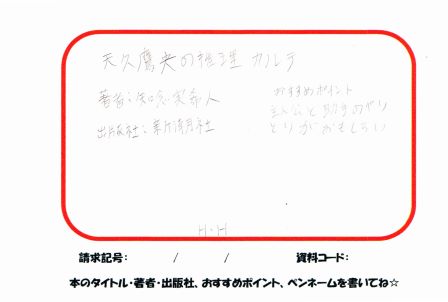 天久鷹央の推理カルテ
著者:知念実希人
出版社:新潮社
おすすめポイント
主人公と助手のやり
とりがおもしろい
H・H
請求記号: / /
資料コード:
本のタイトル・著者・出版社、おすすめポイント、ペンネームを書いてね☆